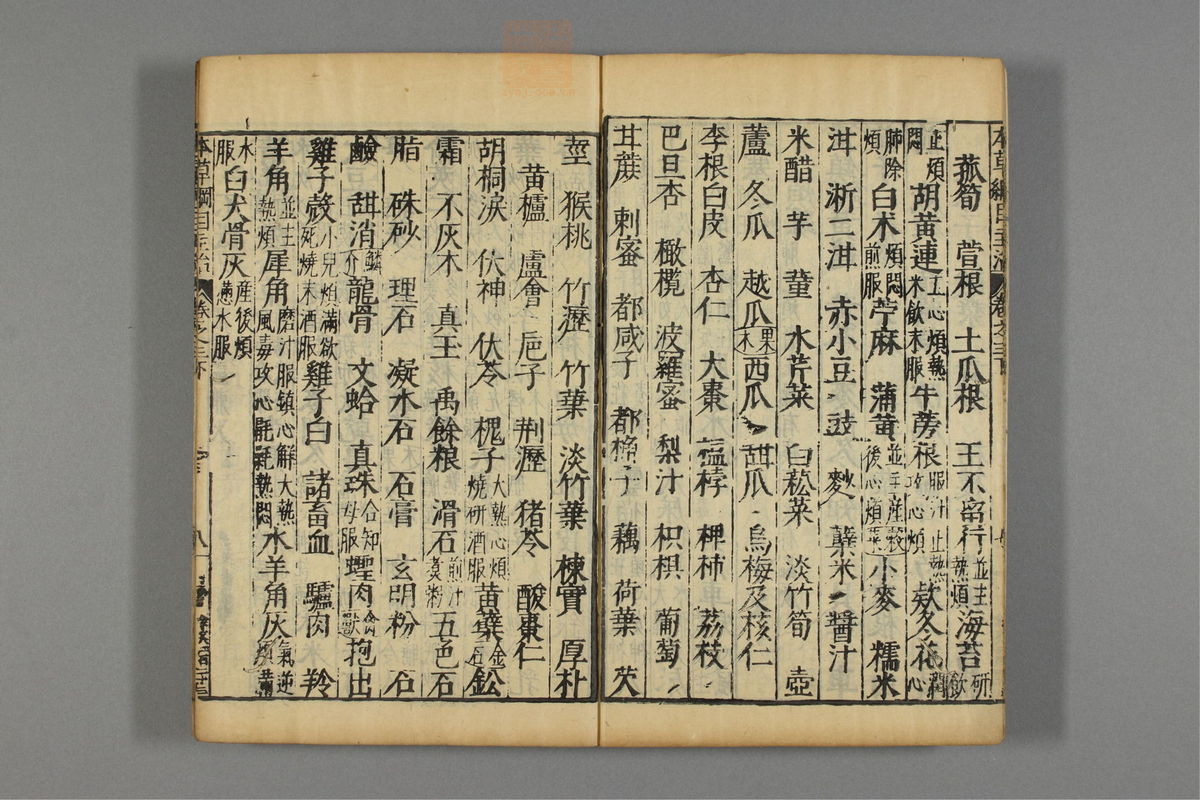 菰筍 菅根 土瓜根 王不留行並主熱煩 海苔研飲
止煩悶 胡黃連主心煩熱米飲末服 牛蒡根服汁止熱攻心煩 款冬花潤心
肺除煩 白术煩悶煎服 苧麻 蒲黃並主產後心煩 小麥 糯米
泔 淅二泔 赤小豆 豉 麨 糵米 醬汁
米醋 芋 蕫 水芹菜 白菘菜 淡竹筍 壺
蘆 冬瓜 越瓜 果木西瓜 甜瓜 烏梅及核仁
李根白皮 杏仁 大棗 榅桲 椑柿 荔枝
巴旦杏 橄欖 波羅蜜 梨汁 枳椇 葡萄
甘蔗 刺蜜 都咸子 都桷子 藕 荷葉 芡
莖 猴桃 竹瀝 竹葉 淡竹葉 楝實 厚朴
黃櫨 盧會 巵子 荆瀝 猪苓 酸棗仁
胡桐淚 伏神 伏苓 槐子大熱心煩燒研酒服 黃蘗 金石鈆
霜 不灰木 真玉 禹餘粮 滑石煎汁煑粥 五色石
脂 硃砂 理石 凝水石 石膏 玄明粉 石
鹼 甜消 鱗介龍骨 文蛤 真珠合知母服 蟶肉 禽獸抱出
雞子殼小兒煩滿欲死燒末酒服 雞子白 諸畜血 驢肉 羚
羊角並主熱煩 犀角磨汁服鎮心解大熱風毒攻心毷氉熱悶 水羊角灰氣逆煩滿
水服 白犬骨灰產後煩懣水服